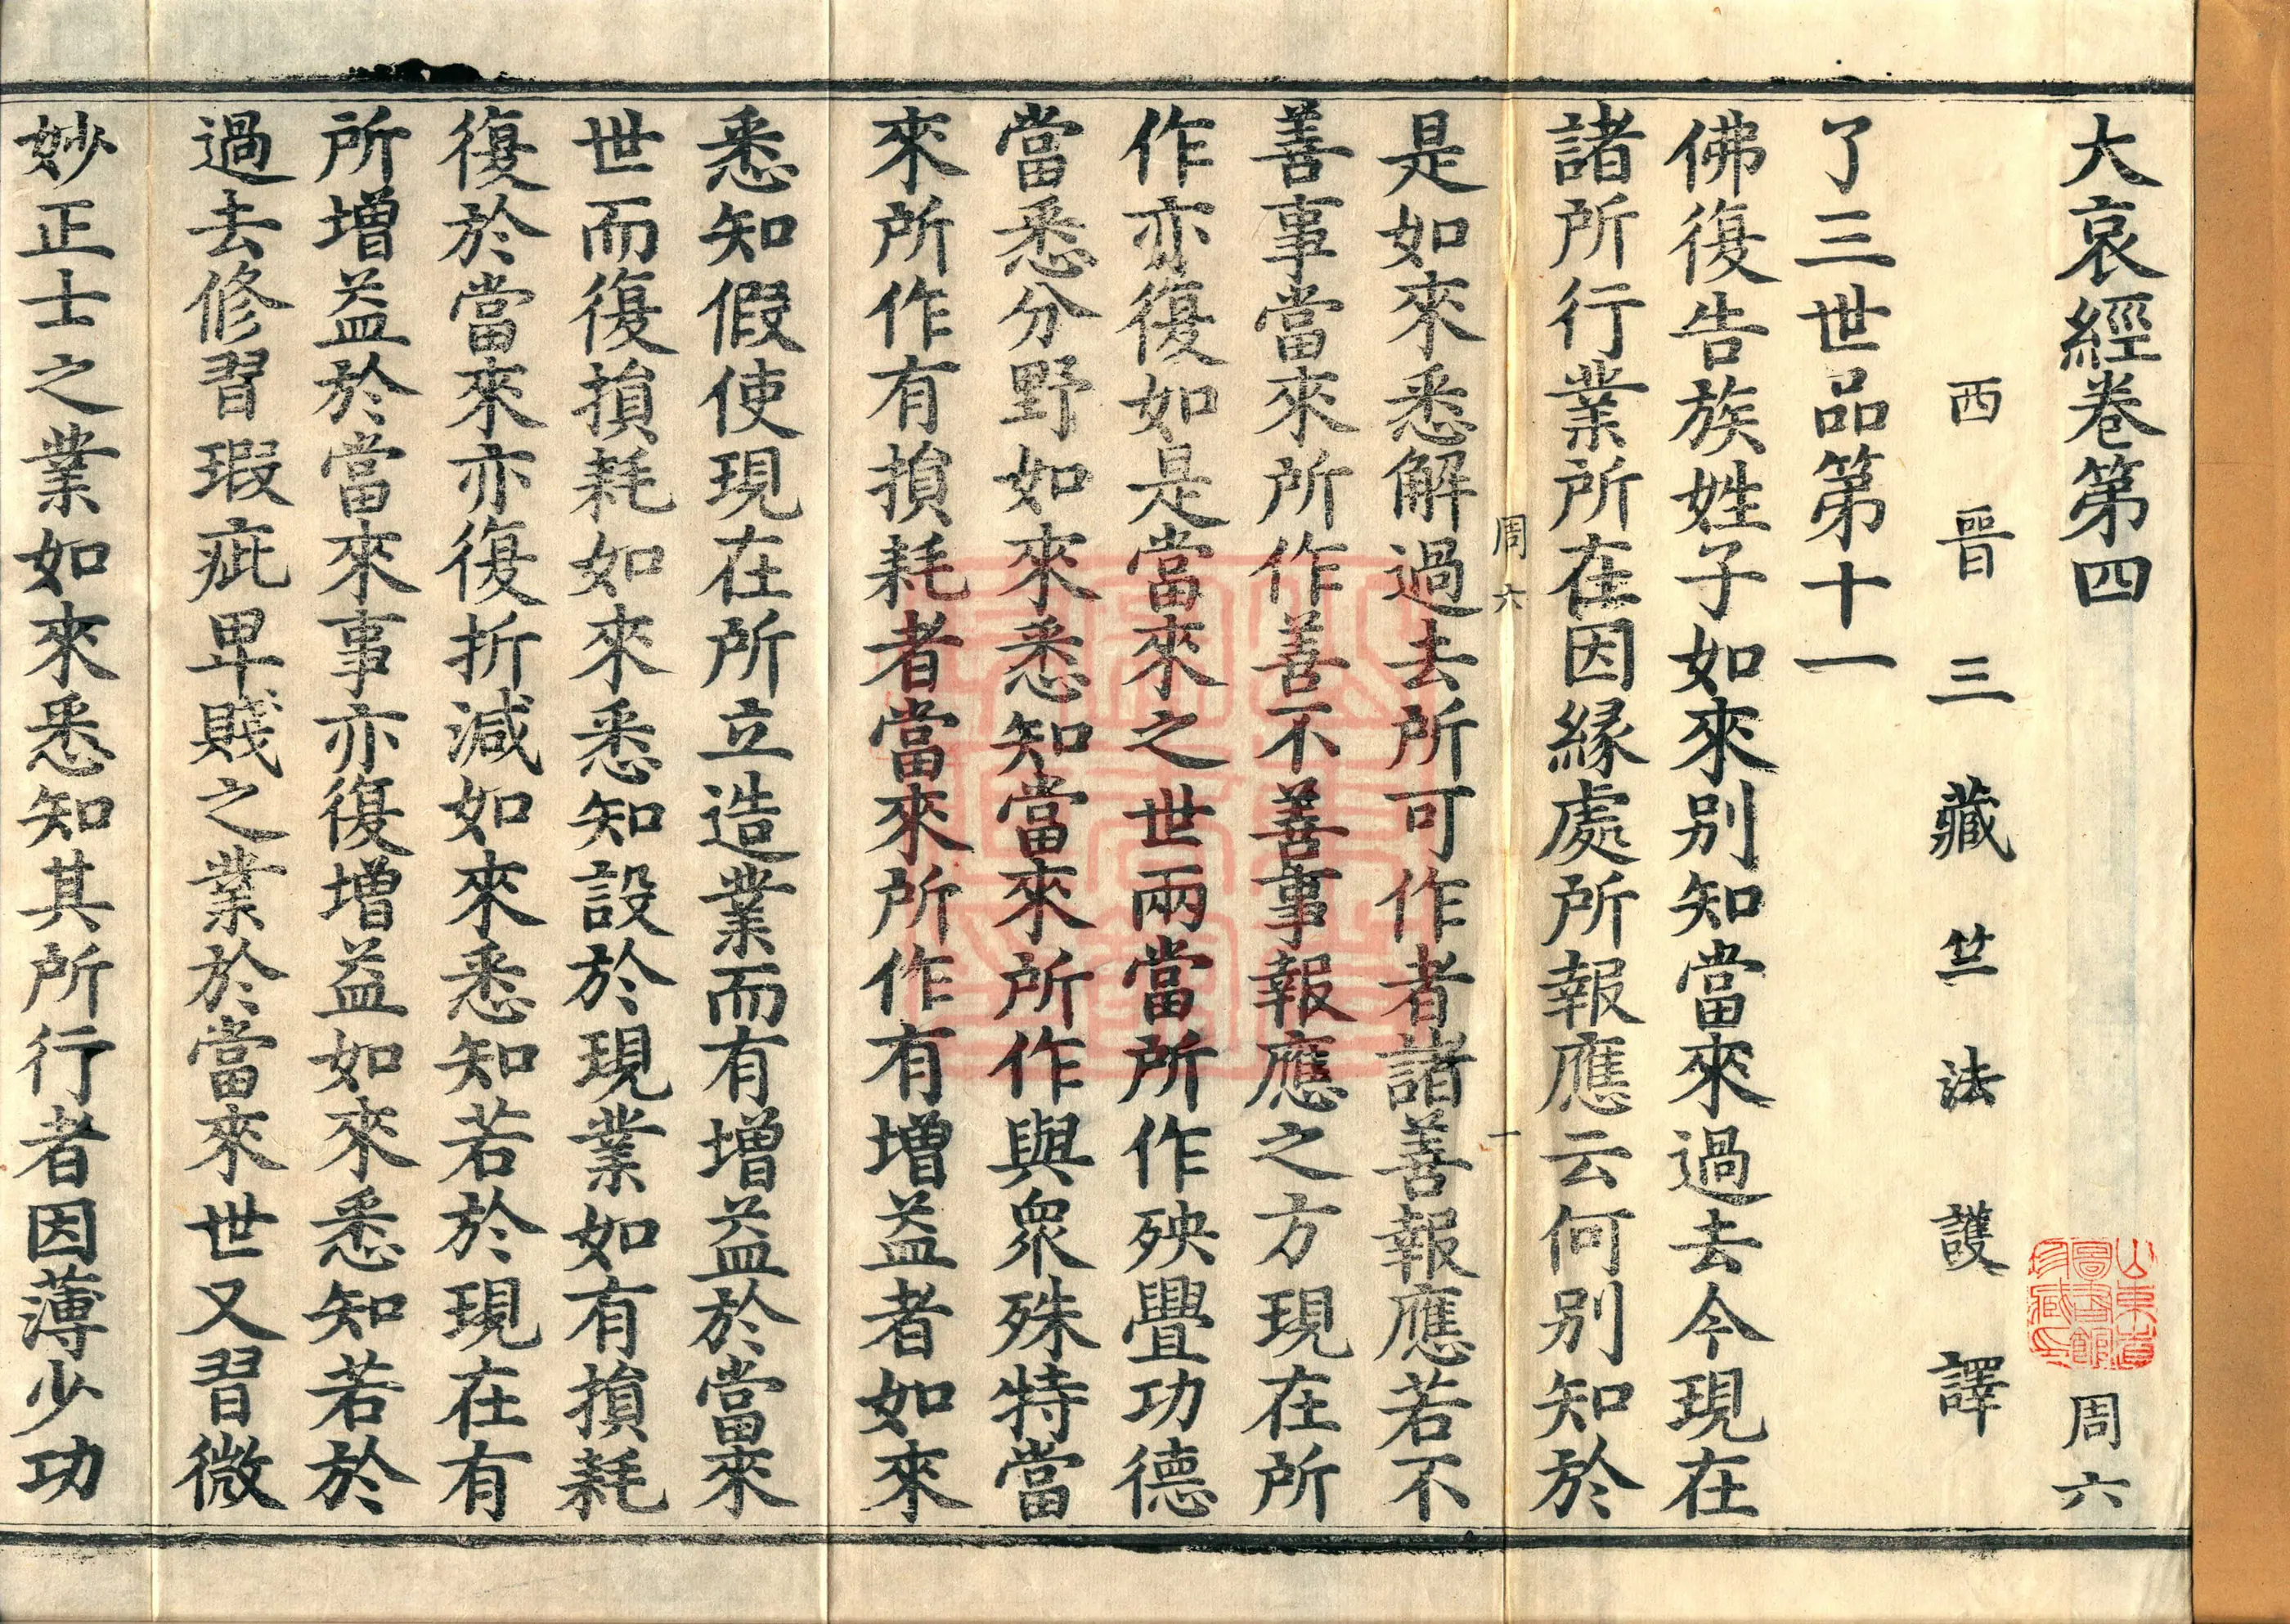 大哀經卷第四
周六
西晉三藏竺法護譯
了三世品第十一
佛復告族姓子如來別知當來過去今現在
諸所行業所在因緣處所報應云何別知於
周六
一
是如來悉解過去所可作者諸善報應若不
善事當來所作善不善事報應之方現在所
作亦復如是當來之世兩當所作殃釁功德
當悉分野如來悉知當來所作與衆殊特當
來所作有損耗者當來所作有增益者如來
悉知假使現在所立造業而有增益於當來
世而復損耗如來悉知設於現業如有損耗
復於當來亦復折減如來悉知若於現在有
所增益於當來事亦復增益如來悉知若於
過去修習瑕疵卑賤之業於當來世又習微
妙正士之業如來悉知其所行者因薄少功
山東省圖書館珍藏印